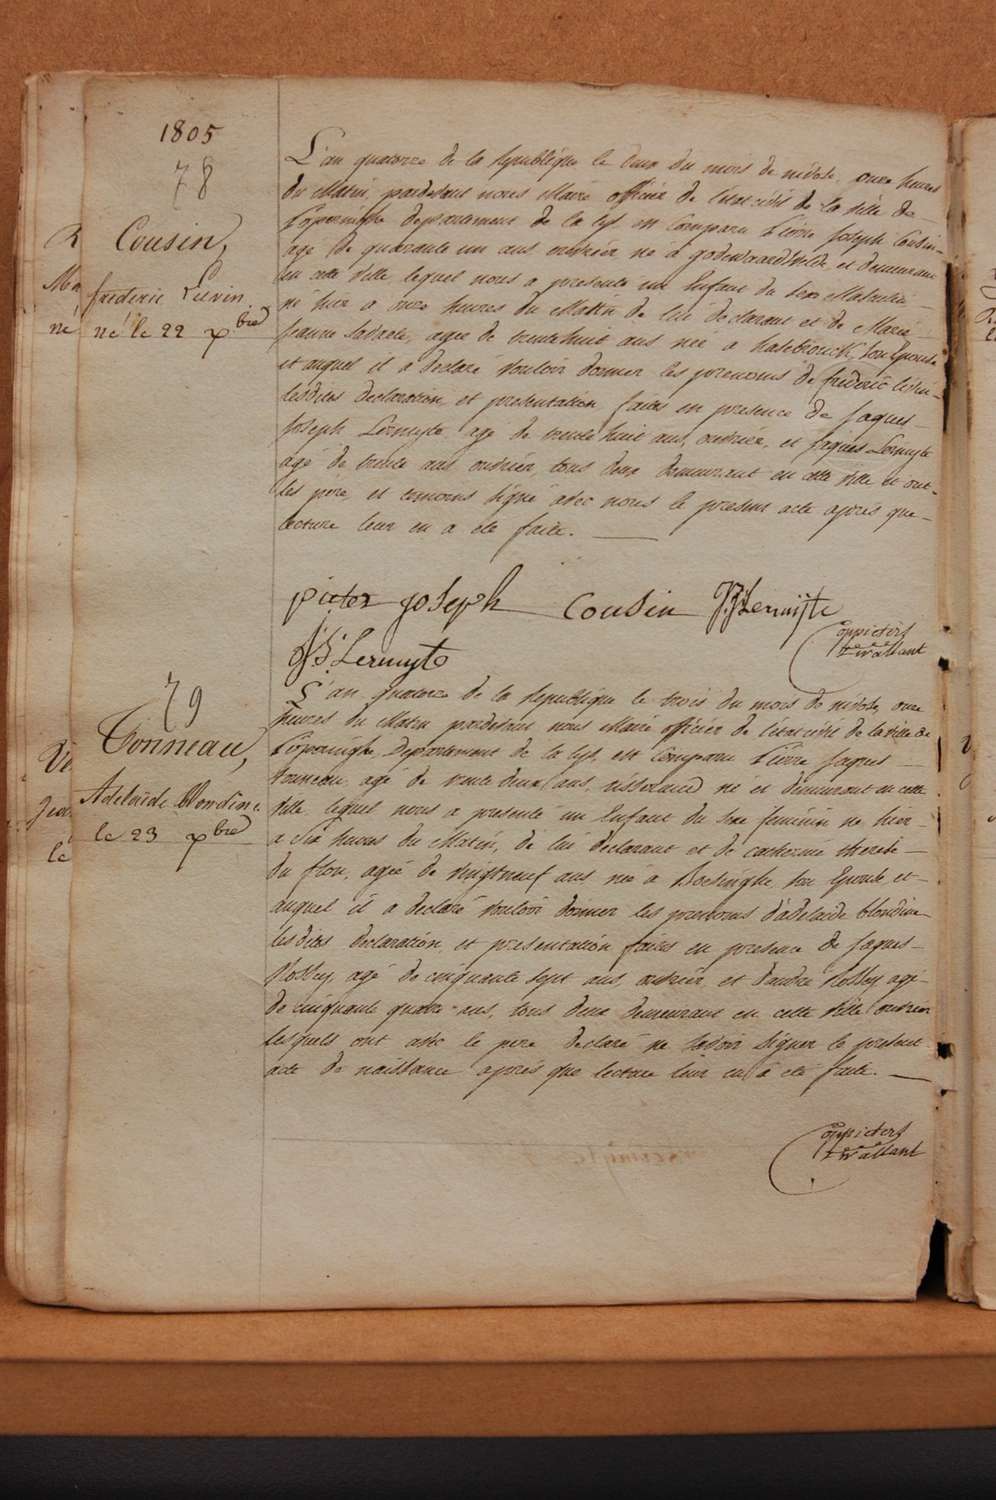 1805
78
Cousin,
frederic Livin
né le 22 xbre
L'an quatorze de la republique le deux du mois de nivôse, onze heures
du Matin, pardevant nous Maire officier de l'état civil de la ville de
Poperinghe departement de la Lys est Comparu Pierre Joseph Cousin
agé de quarante un ans ouvrier né à godewaersvelde et demeurant
en cette ville lequel nous a presenté un Enfant du sexe Masculin
né hier a onze heures du Matin de lui declarant et de Marie
jeanne agée de trente huit ans née a hasebrouck, son Epouse
et auquel il a declaré vouloir donner les prenoms de frederic Livin
lesdites declaration et presentation faites en presence de Jaques
Joseph Lermyte agé de trente huit ans, ouvrier, et Jaques Lermyte
agé de trente ans ouvrier, tous deux demeurant en cette ville et ont
les pere et temoins signé avec nous le present acte apres que
lecture leur en a eté faite.
pieter Joseph Cousin JJ Lermijte
JB Lermyte
Coppieters
t'wallant
79
Tonneau,
Adelaïde Blondine
le 23 xbre
L'an quatorze de la republique le trois du mois de nivôse, onze
heures du Matin pardevant nous Maire officier de l'état civil de la ville de
Poperinghe, Departement de la Lys, est Comparu Pierre Jaques
Tonneau agé de trente deux ans, né et demeurant en cette
ville lequel nous a presenté un Enfant du sexe feminin né hier
a six heures du Matin, de lui declarant et de catherine therese
du flou, agée de vingtneuf ans née à Boesinghe son Epouse et
auquel il a declaré vouloir donner les prenoms d'adelaide blondine
lesdites declaration et presentation faites en presence de Jaques
agé de cinquante sept ans ouvrier et d'andré agé
de cinquante quatre ans, tous deux demeurant en cette ville ouvrier
lesquels ont avec le pere declaré ne savoir signer le present
acte de naissance après que lecture leur en a eté faite.
Coppieters
t'wallant